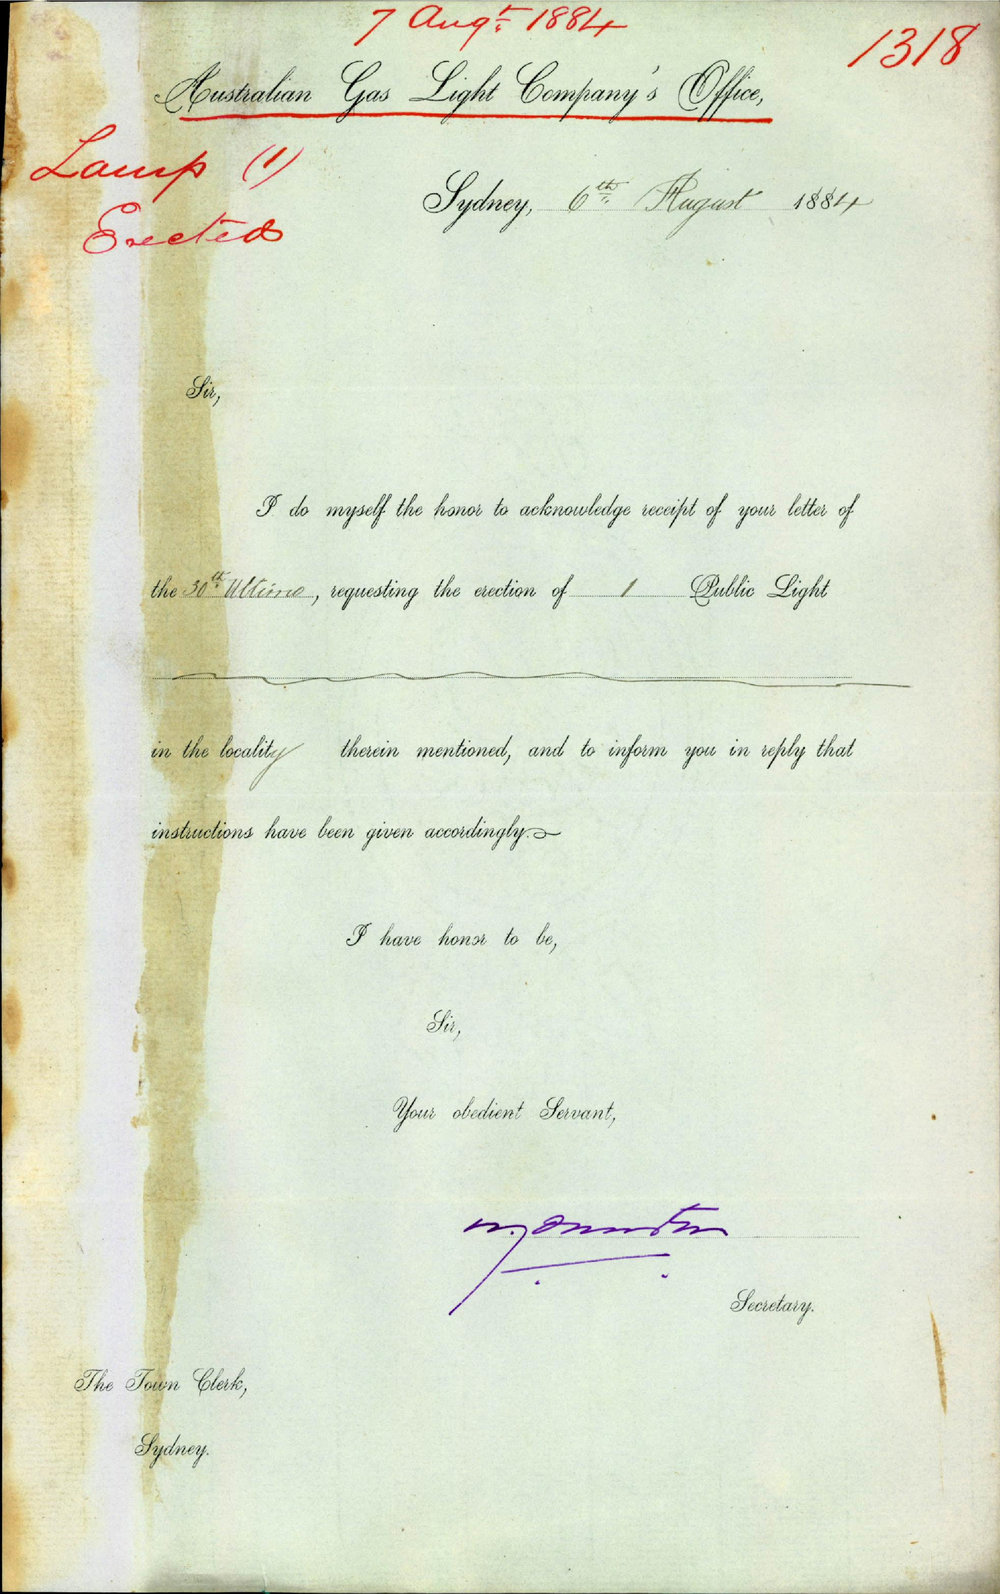 7 Augt. 1884
1318
Australian Gas Light Company's Office,
Lamp (1)
Erected
Sydney, 6th August 1884
Sir,
I do myself the honor to acknowledge receipt of your letter of
the 30th Ultimo, requesting the erection of 1 Public Light
in the locality therein mentioned, and to inform you in reply that
instructions have been given accordingly.
I have honor to be,
Sir,
Your obedient Servant,
Secretary.
The Town Clerk,
Sydney.